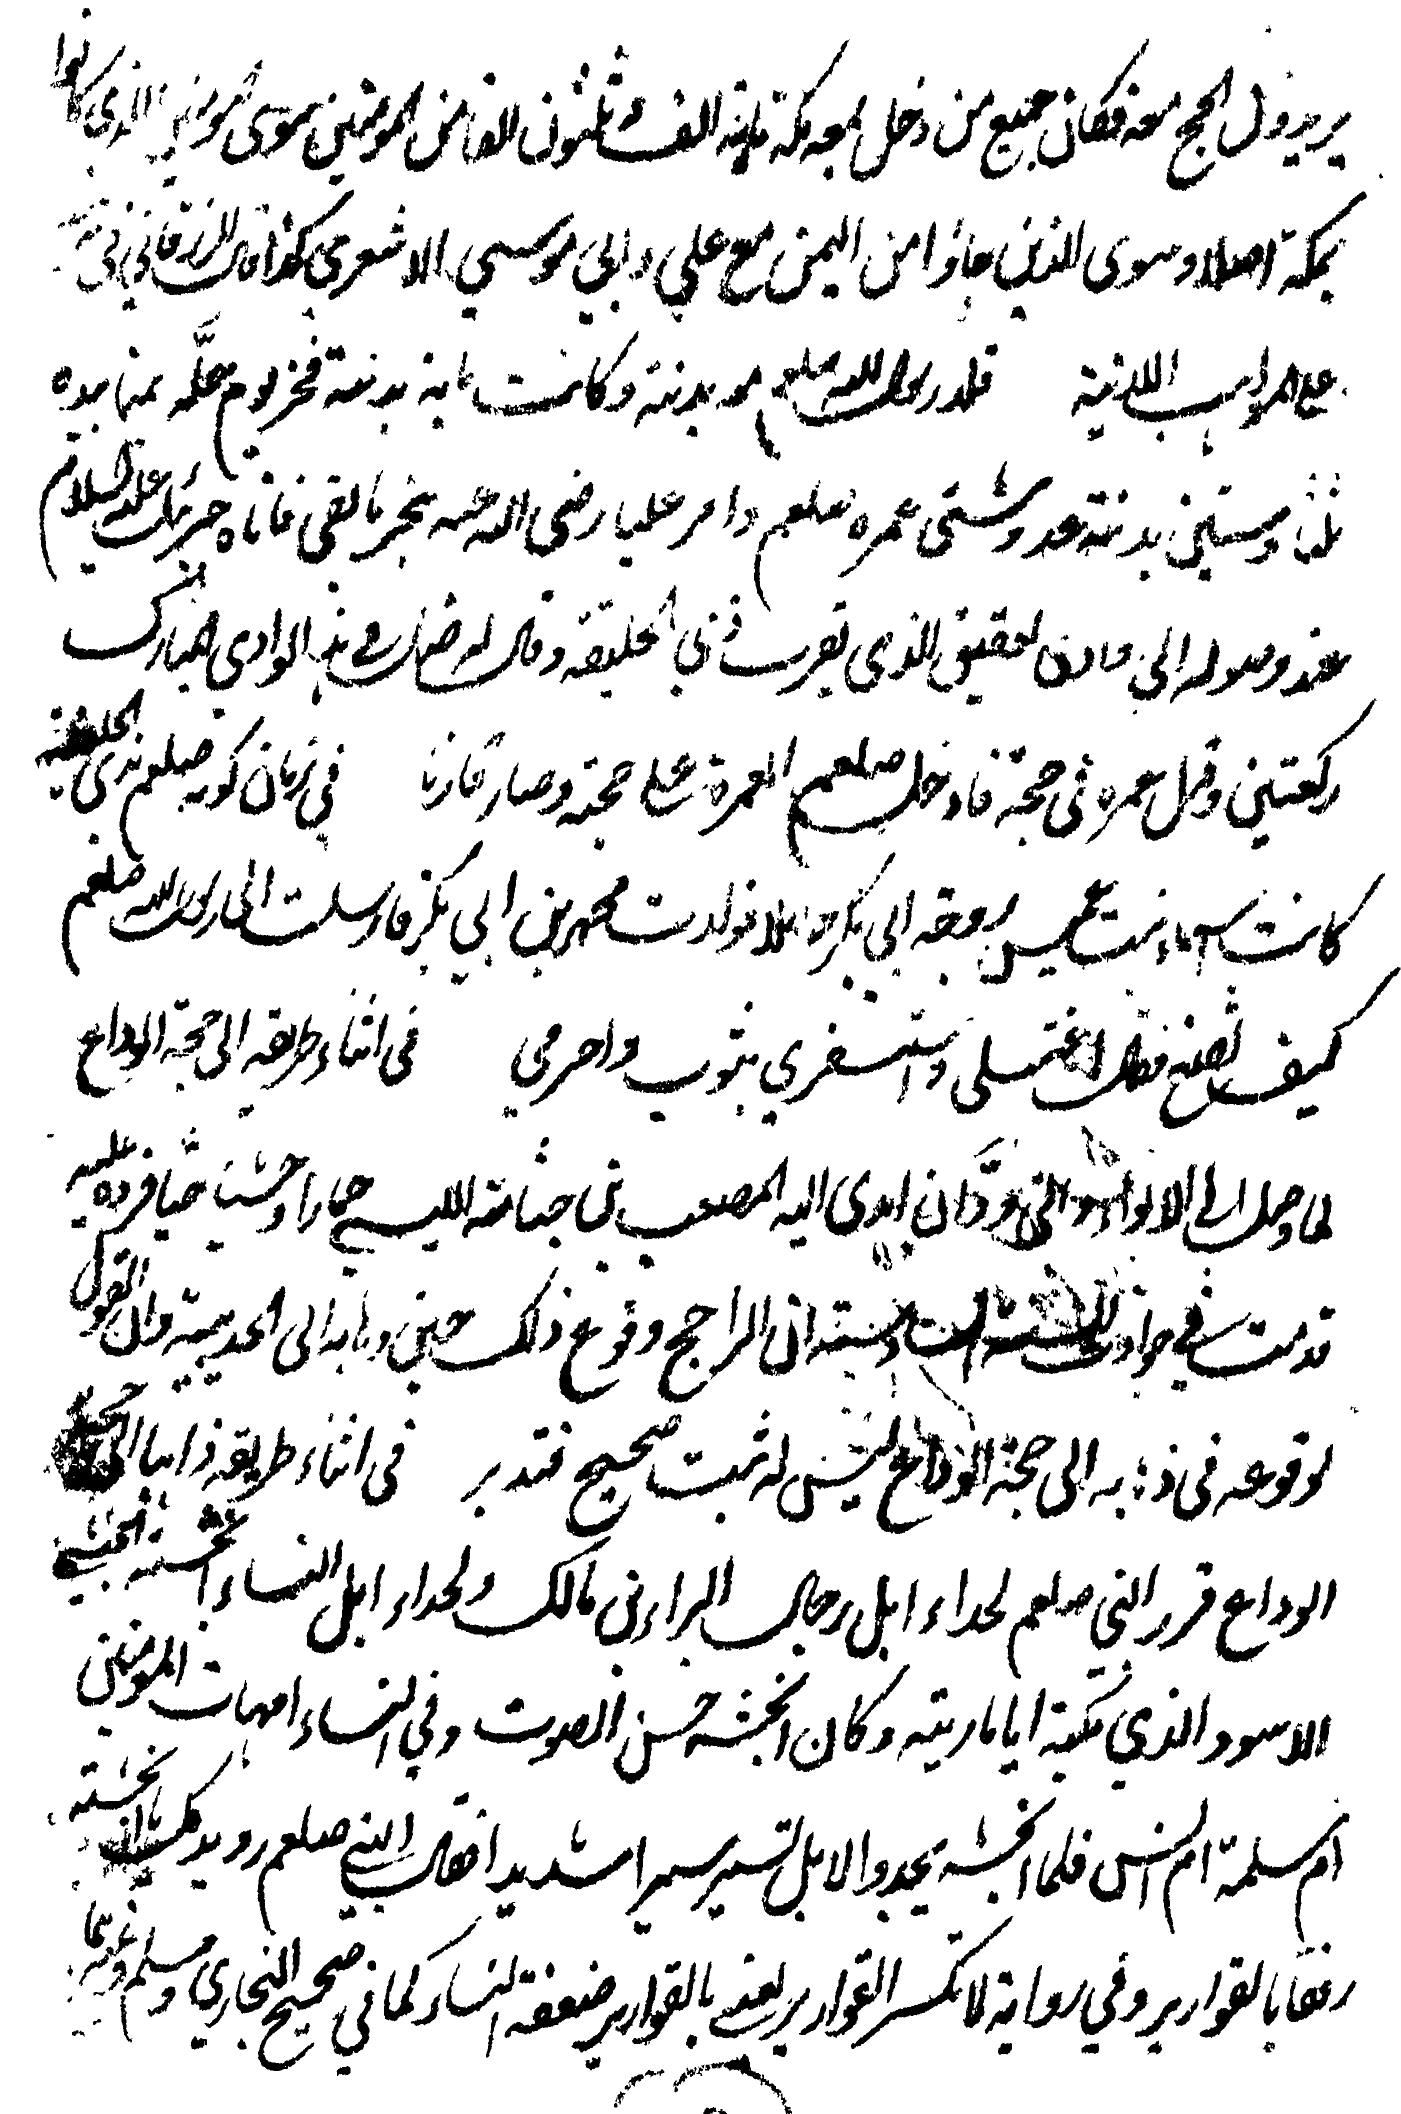 يريدون الحج معه فكان جميع من دخل معه مكة مائة الف وثلثون الفا من المومنين سوى المومنين الذي كانوا
بمكة اصلا وسوى الذين جاؤا من اليمن مع علي وابي موسى الاشعري كذا قال الزرقاني في
على المواهب اللدنية قلد رسول الله صلعم بدنته وكانت مائة بدنة فنحر يوم محله منها بيده
ثلثا وستين بدنة عدد سني عمره صلعم وامر عليا رضي الله عنه بنحر ما بقي فاتاه جبرئيل عليه السلام
عند وصوله الى وادى العقيق الذي بقرب ذي الحليفة وقال له صل في هذا الوادي المبارك
ركعتين وقل عمرة في حجة فادخل صلعم العمرة على حجته وصار قارنا في زمان كونه صلعم بذي الحليفة
كانت اسماء بنت عميس زوجة ابي بكر حاملا فولدت محمد بن ابي بكر فارسلت الى رسول الله صلعم
كيف تصنع فقال اغتسلي واستسفري بثوب واحرمي في اثناء طريقه الى حجة الوداع
لما وصل الى الابواء وودان اهدى اليه المصعب بن جثامة الليثي حمارا وحشيا حيا فرده عليه
قدمت في حوادث السنة السادسة ان الراجح وقوع ذلك حين ذهابه الى الحديبية وان القول
لوقوعه في ذهابه الى حجة الوداع ليس له ثبت صحيح فتدبر في اثناء طريقه ذاهبا الى حجة
الوداع قرر النبي صلعم لحداء ابل رجال البراء بن مالك ولحداء ابل النساء انجشة الحبشي
الاسود الذي كنيته ابا مارية وكان انجشه حسن الصوت وفي النساء امهات المومنين
ام سلمة ام انس فلما انجشه يحدو الابل تسير سيرا شديدا فقال النبي صلعم رويدك يا انجشة
رفقا بالقوارير وفي رواية لا تكسر القوارير يعني بالقوارير ضعفة النساء كما في صحيح البخاري ومسلم وغيرهما